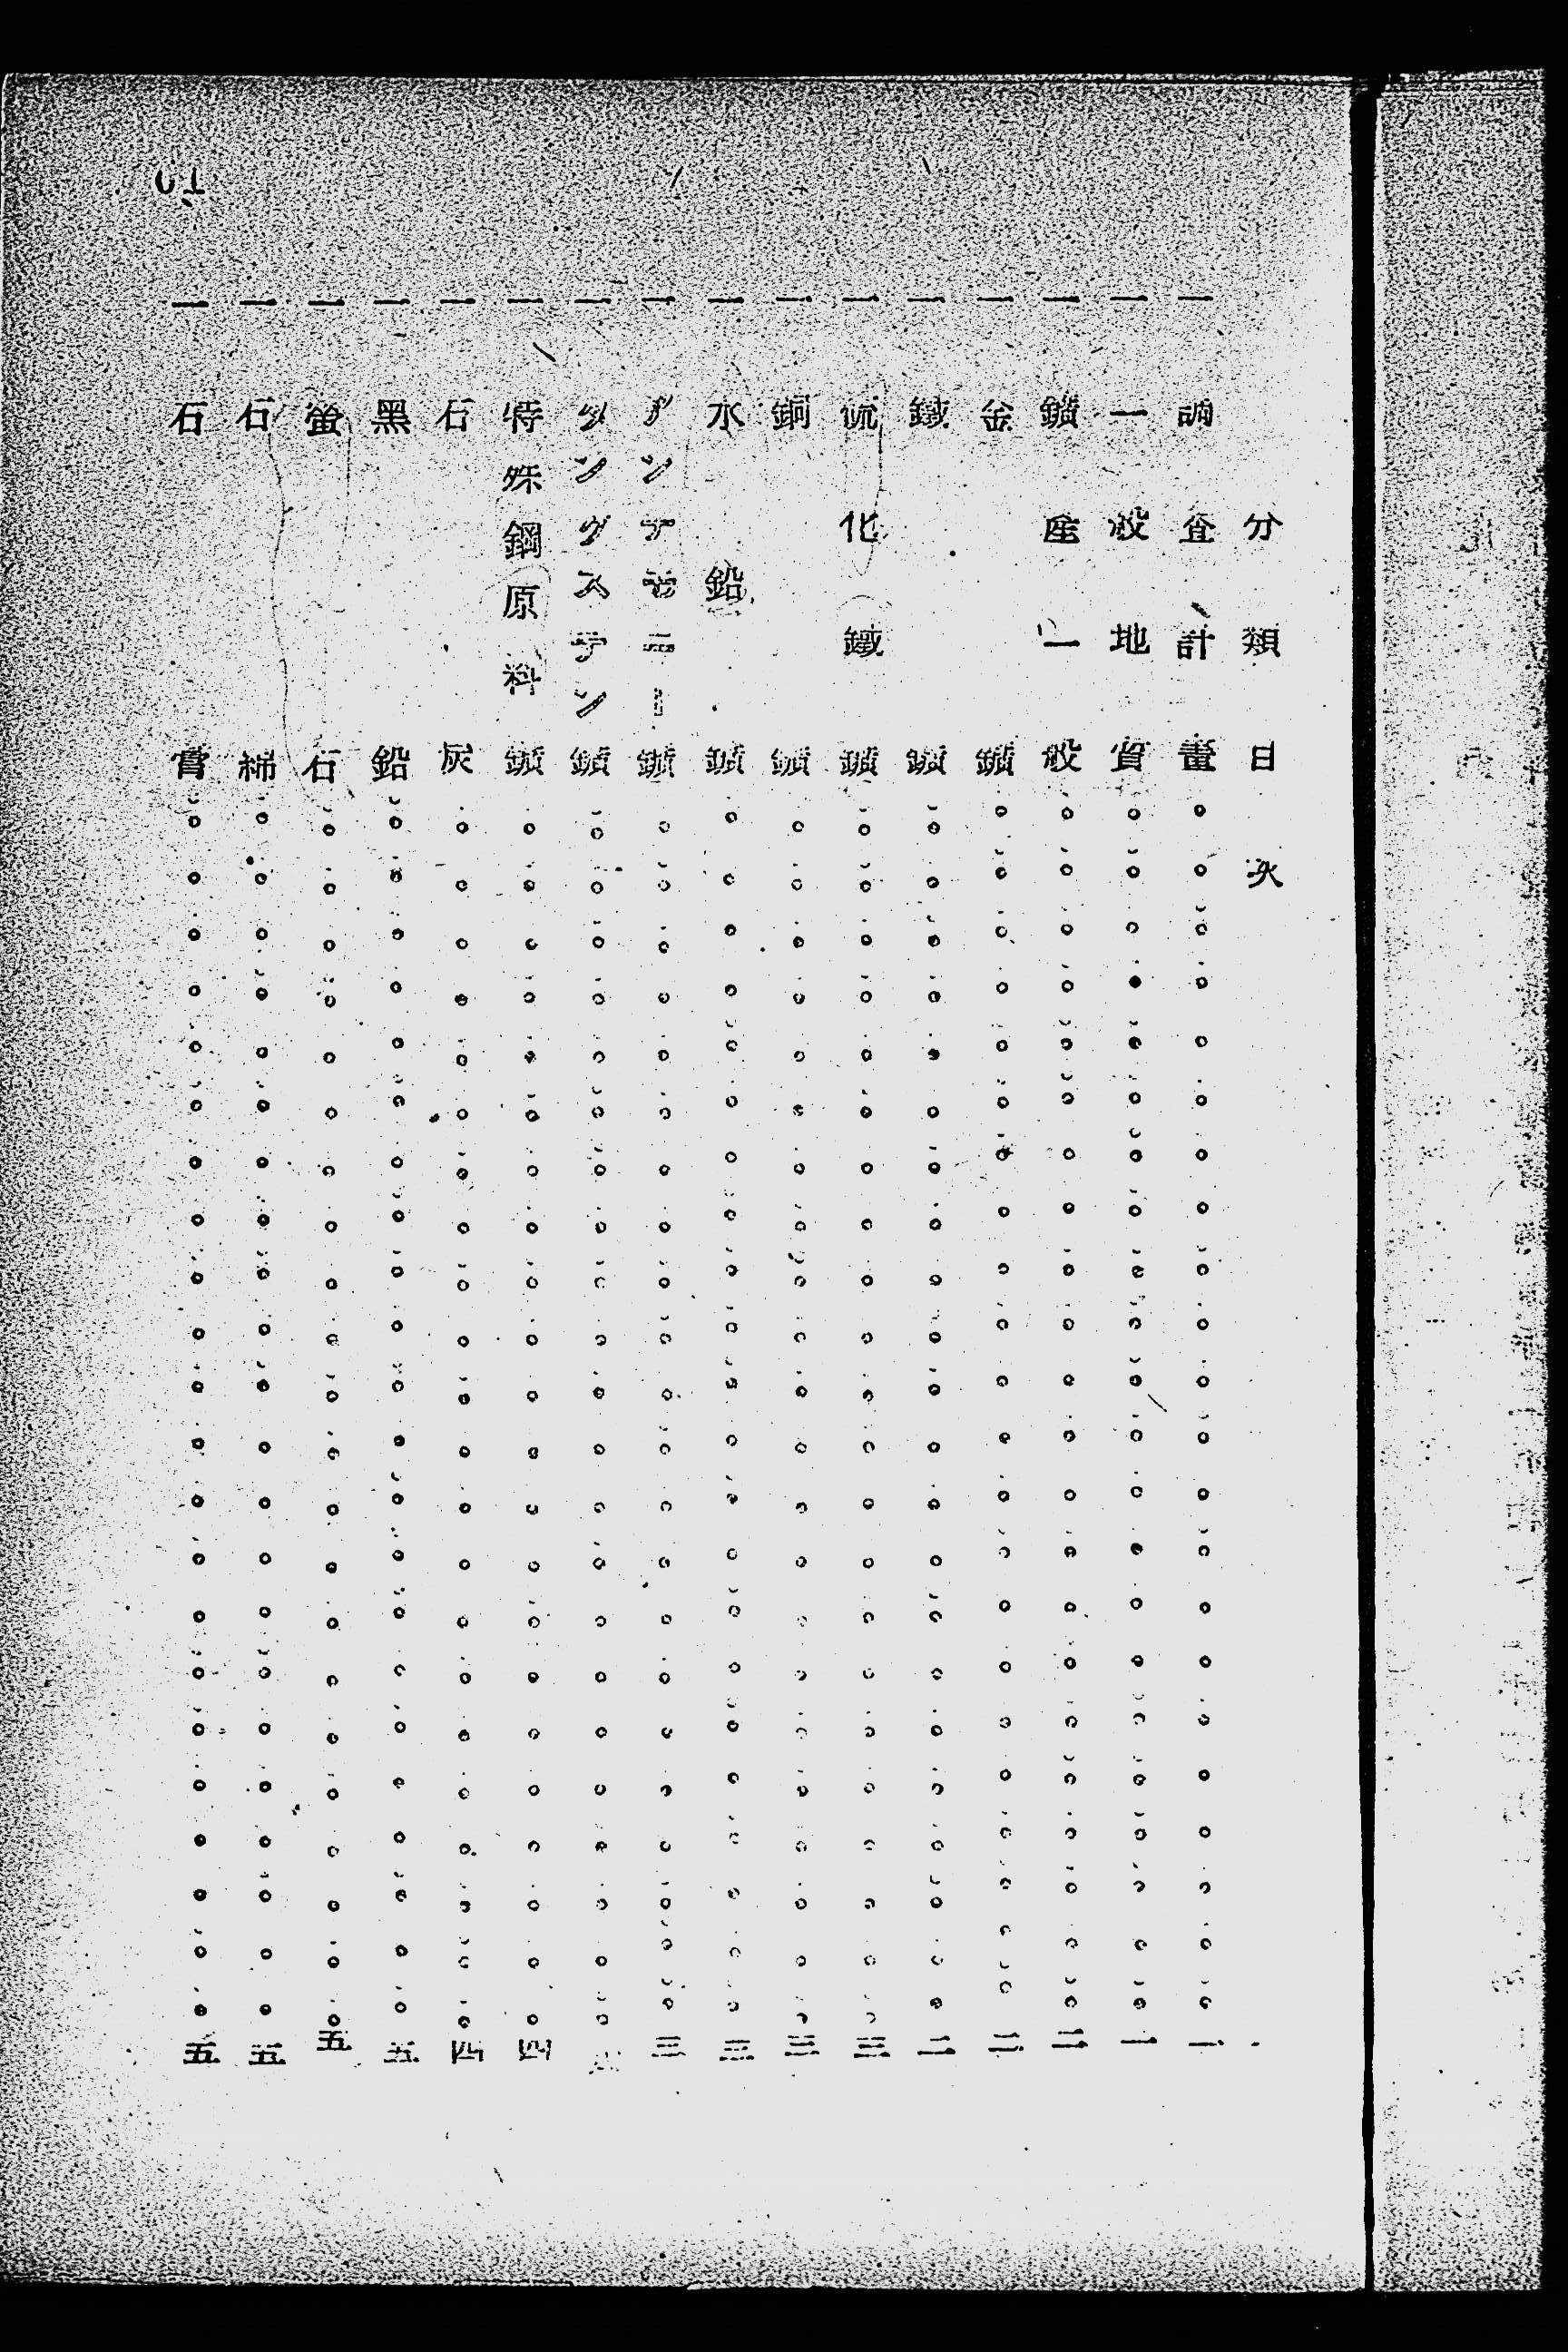 分類目次
一 調査計畫…………一
一 一般地質…………一
一 鑛産一般…………二
一 金鑛…………二
一 鐵鑛…………二
一 硫化鐵鑛…………三
一 銅鑛…………三
一 水鉛鑛…………三
一 アンチモニー鑛…………三
一 タングステン鑛…………
一 特殊鋼原料鑛…………四
一 石炭…………四
一 黑鉛…………五
一 螢石…………五
一 石綿…………五
一 石膏…………五